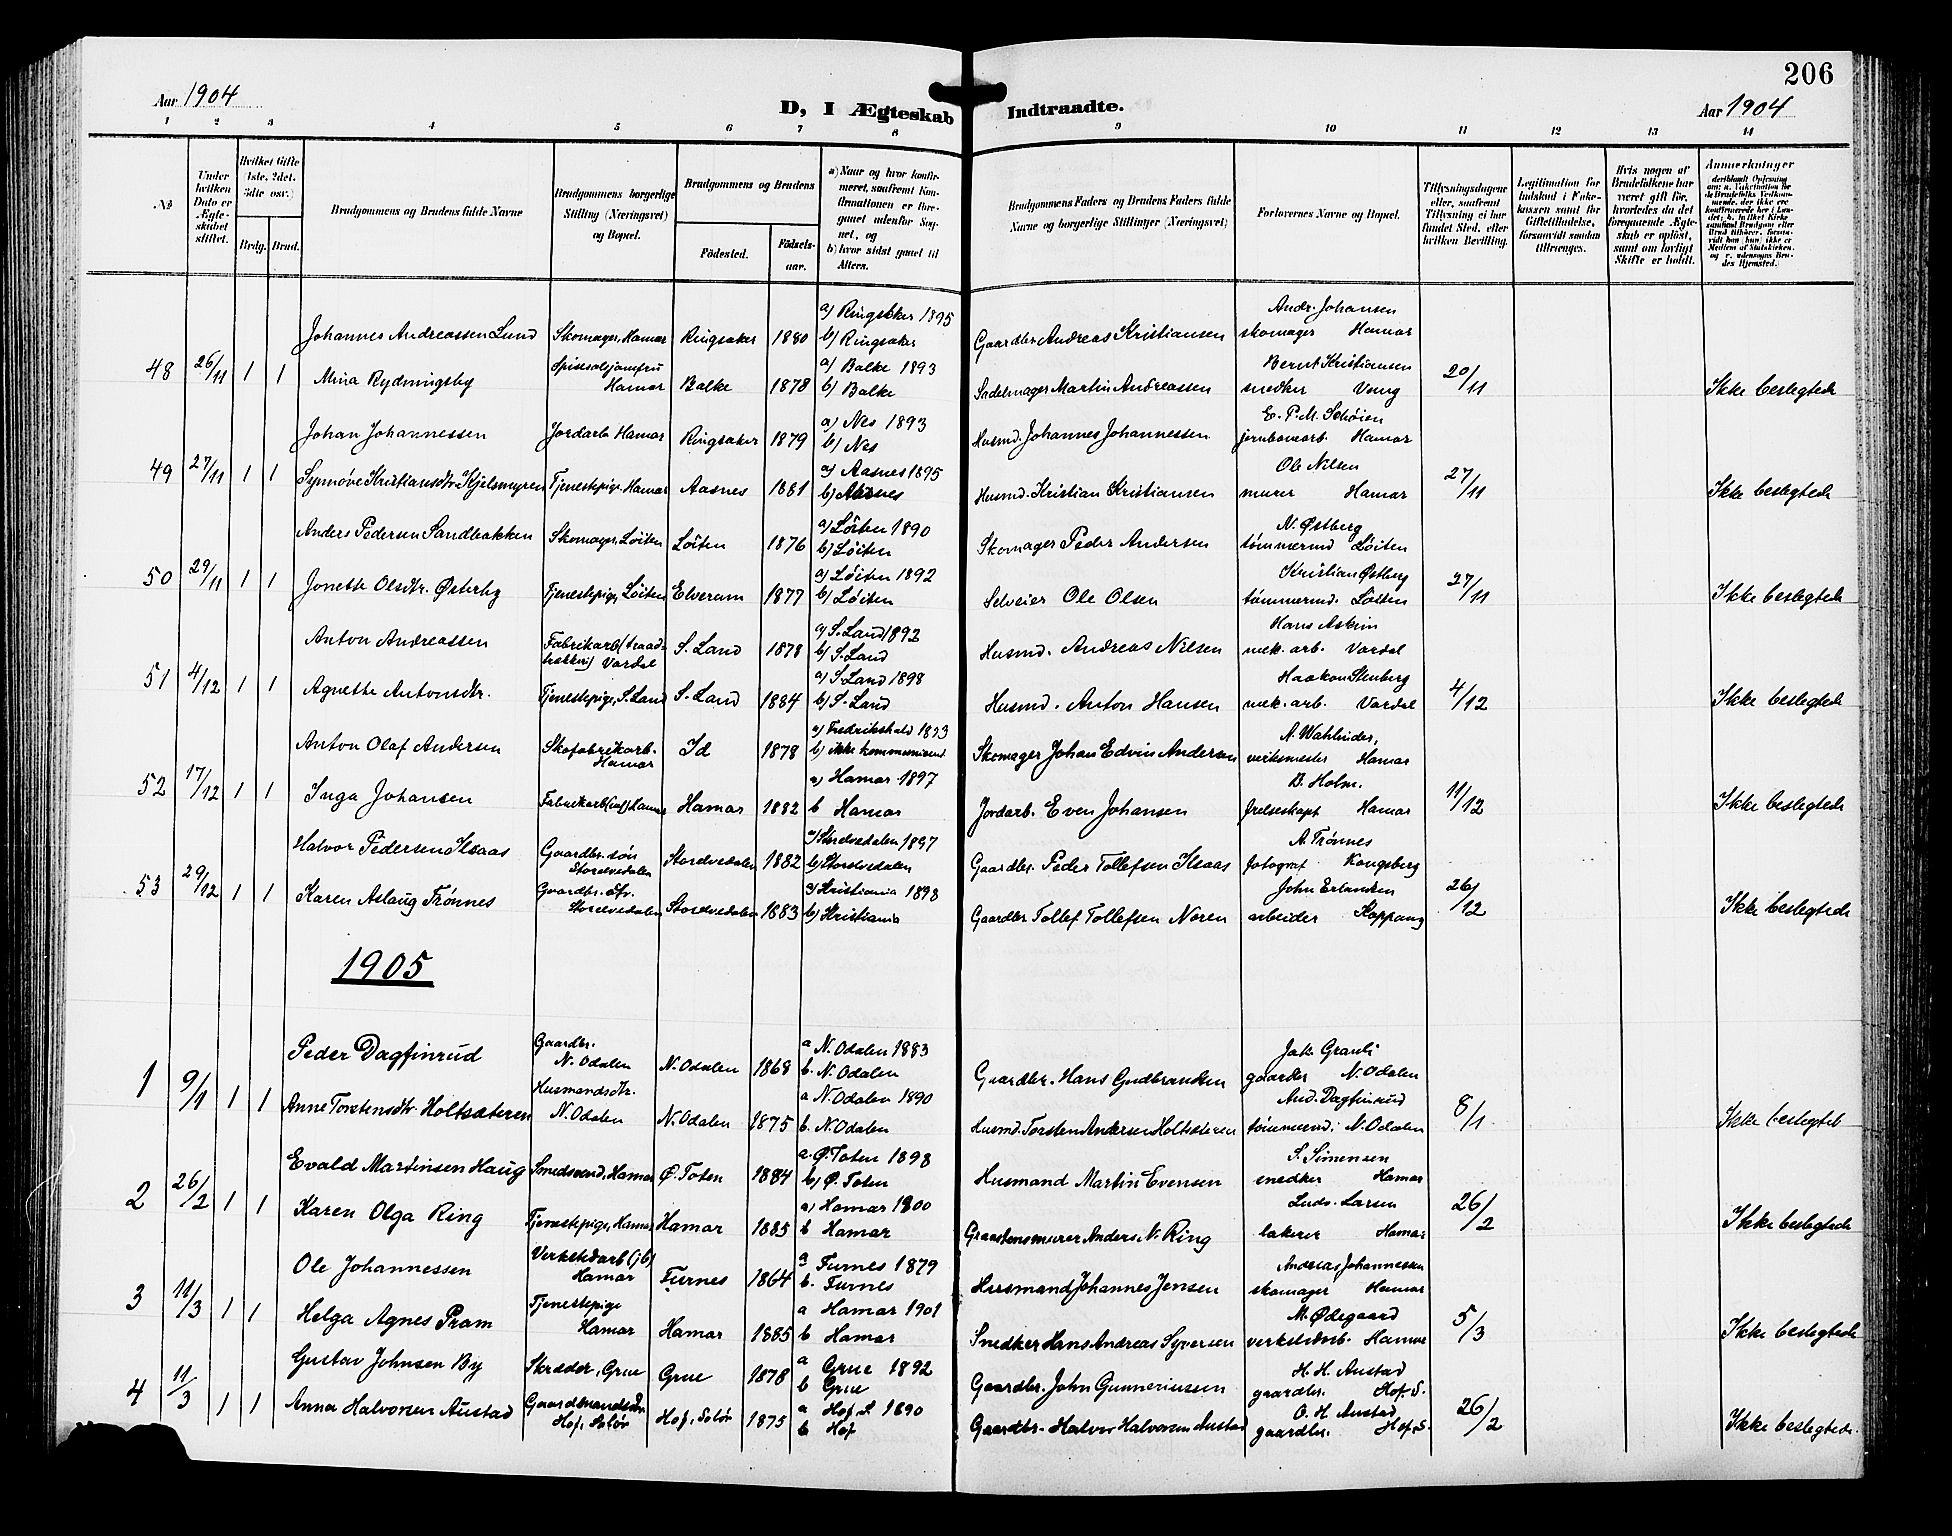 206
Aar 1904
D, I Ægteskab Indtraadte.
Aar 1904
1 2 3 4 5 6 7 8 9 10 11 12 13 14
No
Under hvilken Dato er Ægteskabet stiftet.
Hvilket Gifte (1ste, 2det, 3die osv.)
Brdg. Brud.
Brudgommens og Brudens fulde Navne
Brudgommens borgerlige Stilling (Næringsvei) og Bopæl.
Brudgommens og Brudens
Födested.
Födselsaar.
a) Naar og hvor konfirmeret, saafremt Konfirmationen er foregaaet udenfor Sognet, og
b) hvor sidst gaaet til Alters.
Brudgommens Faders og Brudens Faders fulde Navne og borgerlige Stillinger (Næringsvei)
Forlovernes Navne og Bopæl.
Tillysningsdagene eller, saafremt Tillysning ei har fundet Sted, efter hvilken Bevilling.
Legitimation for Indskud i Enkekassen samt for Giftetilladelse, forsaavidt saadan tiltrænges.
Hvis nogen af Brudefolkene har været gift för, hvorledes da det foregaaende Ægteskab er oplöst, samt om lovligt Skifte er holdt.
Anmerkninger
48 26/11 1 1
Johannes Andreassen Lund Skomager, Hamar Ringsaker 1880 a) Ringsaker 1895 b) Ringsaker Gaardbr. Andreas Kristiansen Andr. Johansen skomager Hamar
Mina Rydningsby Spisesaljomfru Hamar Balke 1878 a) Balke 1893 b) Balke Sadelmager Martin Andreassen Bernt Kristiansen snedker Vang 20/11 Ikke beslegtede
49 27/11 1 1
Johan Johannessen Jordarb. Hamar Ringsaker 1879 a) Nes 1893 b) Nes Husmd. Johannes Johannessen E. P. M. Schøien jernbanearb. Hamar
Synnøve Kristiansdtr. Kjelsmyren Tjenestepige, Hamar Aasnes 1881 a) Aasnes 1895 b) Aasnes Husmd. Kristian Kristiansen Ole Nilsen murer Hamar 27/11 Ikke beslegtede
50 29/11 1 1
Anders Pedersen Sandbakken Skomager, Løiten Løiten 1876 a) Løiten 1890 b) Løiten Skomager Peder Andersen N. Østberg tømmermd Løiten
Jonette Olsdtr. Østerby Tjenestepige, Løiten Elverum 1877 a) Løiten 1892 b) Løiten Selveier Ole Olsen Kristian Østberg tømmermd. Løiten 27/11 Ikke beslegtede
51 4/12 1 1
Anton Andreassen Fabrikarb. (traadtrækkeri) Vardal S. Land 1878 a) S. Land 1892 b) S. Land Husmd. Andreas Nilsen Hans Askim mek. arb. Vardal
Agnethe Antonsdtr. Tjenestepige, S. Land S. Land 1884 a) S. Land 1898 b) S. Land Husmd. Anton Hansen Haakon Stenberg mek. arb. Vardal 4/12 Ikke beslegtede
52 17/12 1 1
Anton Olaf Andersen Skofabrikarb. Hamar Id 1878 a) Fredrikshald 1893 b) ikke kommuniceret Skomager Johan Edvin Andersen A. Wahlinder, verksmester Hamar
Inga Johansen Fabrikarb. Hamar Hamar 1882 a) Hamar 1897 b Hamar Jordarb. Even Johansen B. Holm. frelseskapt Hamar 11/12 Ikke beslegtede
53 29/12 1 1
Halvor Pedersen Ilsaas Gaardbr. søn Storelvedalen Storelvedalen 1882 a) Storelvedalen 1897 b) Storelvedalen Gaardbr. Peder Tollefsen Ilsaas A. Trønnes fotograf Kongsberg
Karen Aslaug Trønnes Gaardbr. dtr. Storelvedalen Storelvedalen 1883 a) Kristiania 1898 b) Kristiania Gaardbr. Tollef Tollefsen Noren John Erlandsen arbeider Koppang 26/12 Ikke beslegtede
1905
1 9/1 1 1
Peder Dagfinrud Gaardbr. N. Odalen N. Odalen 1868 a N. Odalen 1883 b. N. Odalen Gaardbr. Hans Gudbrandsen Jak. Grauli gaardbr N. Odalen
Anne Torstensdtr. Holtsæteren Husmandsdtr. N. Odalen N. Odalen 1875 a N. Odalen 1890 b. N. Odalen Husmd. Torsten Andersen Holtsæteren And. Dagfinrud tømmermd. N. Odalen 8/1 Ikke beslegted
2 26/2 1 1
Evald Martinsen Haug Smedsvend, Hamar Ø. Toten 1884 a Ø. Toten 1898 b) Ø. Toten Husmand Martin Evensen S. Simensen snedker Hamar
Karen Olga Ring Tjenestepige, Hamar Hamar 1885 a) Hamar 1900 b Hamar Graastensmurer Anders N. Ring Ludv. Larsen lakerer Hamar 26/2 Ikke beslegtede
3 11/3 1 1
Ole Johannessen Verkstedarb (jb) Hamar Furnes 1864 a Furnes 1879 b. Furnes Husmand Johannes Jensen Andreas Johannessen skomager Hamar
Helga Agnes Pram Tjenestepige Hamar Hamar 1885 a Hamar 1901 b Hamar Snedker Hans Andreas Syversen M. Ødegaard verkstedarb. Hamar 5/3 Ikke beslegtede
4 11/3 1 1
Gustav Johnsen By Skræder, Grue Grue 1878 a Grue 1892 b Grue Gaardbr. John Gunneriussen H. H. Austad gaardbr. Hof. S.
Anna Halvorsen Austad Gaardmandsdtr. Hof, Solør Hof, Solør 1875 a Hof, S. 1890 b Hof Gaardbr. Halvor Halvorsen Austad O. H. Austad gaardbr. Hof. S. 26/2 Ikke beslegtede.